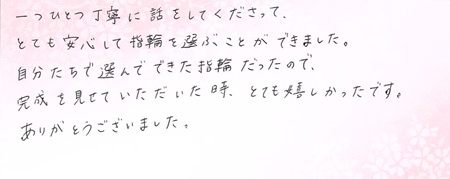 一つひとつ丁寧に話をしてくださって、
とても安心して指輪を選ぶことができました。
自分たちで選んでできた指輪だったので、
完成を見せていただいた時、とても嬉しかったです。
ありがとうございました。